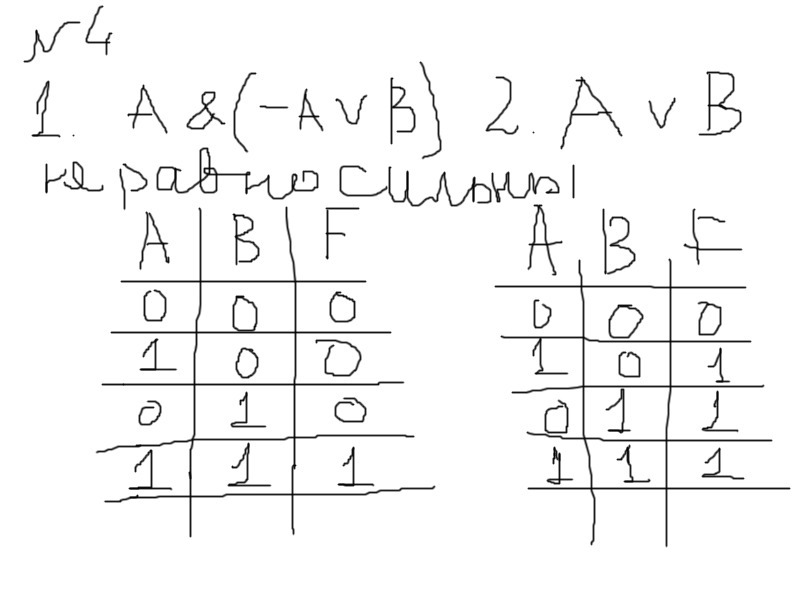 №4
1. A &(-A v B) 2. A v B
не равносильны
A B F A B F
0 0 0 0 0 0
1 0 0 1 0 1
0 1 0 0 1 1
1 1 1 1 1 1